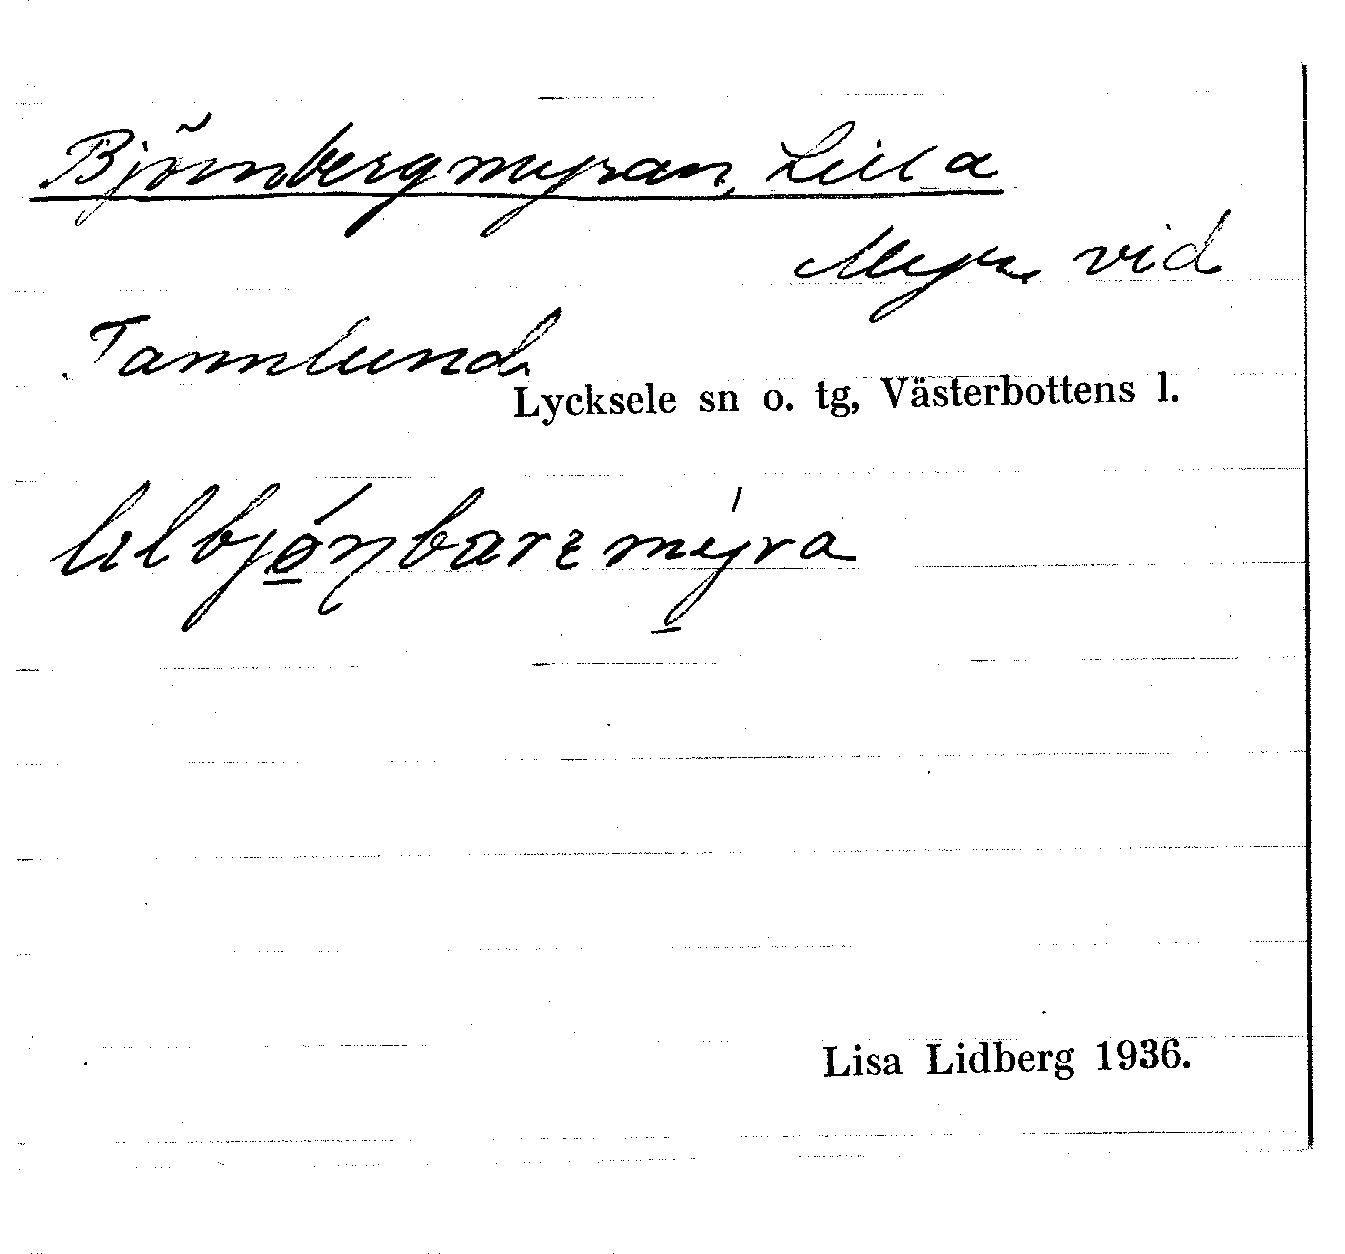 Björnbergmyran, Lilla
Myr vid
Tannlund
Lycksele sn o. tg, Västerbottens l.
lɪlbjǿ̲ɳbarɛmý̲ra
Lisa Lidberg 1936.